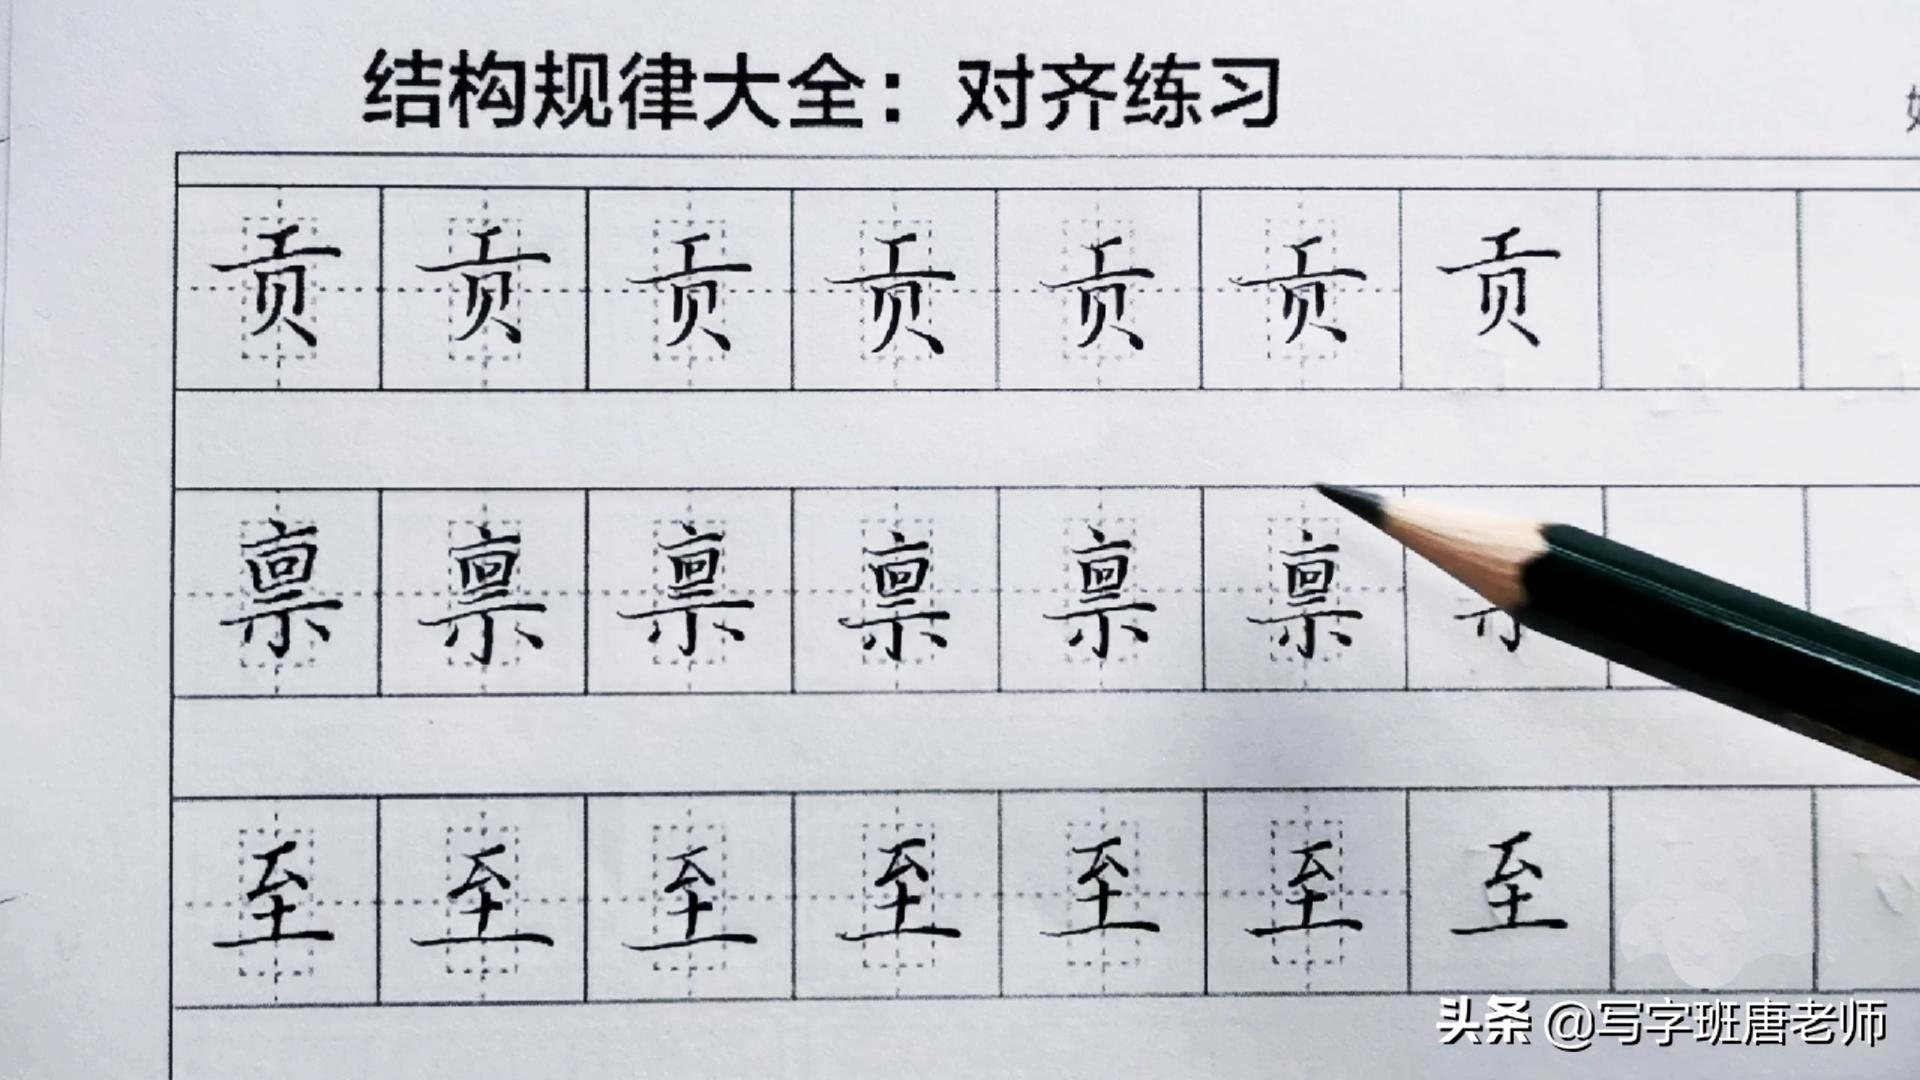 结构规律大全：对齐练习
贡贡贡贡贡贡贡
禀禀禀禀禀禀
至至至至至至至
头条 @写字班唐老师